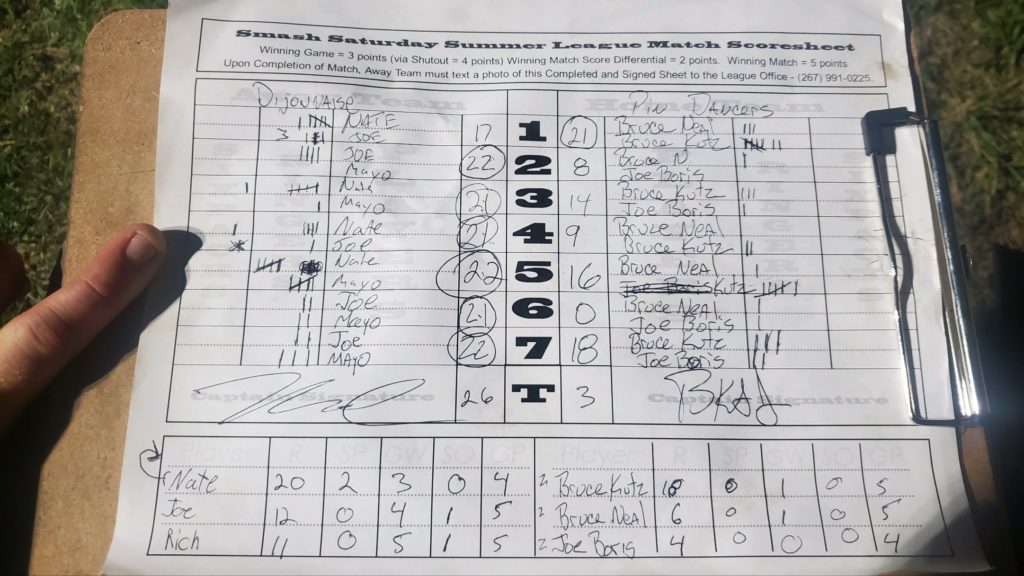 Smash Saturday Summer League Match Scoresheet
Winning Game = 3 points (via Shutout = 4 points) Winning Match Score Differential = 2 points. Winning Match = 5 points
Upon Completion of Match, Away Team must text a photo of this Completed and Signed Sheet to the League Office - (267) 991-0225.
DijouNaise Pin Dancers
NATE 17 1 21 Bruce Neal
3 JOE Bruce Kutz
JOE 22 2 8 Bruce N
Mayo Joe Boris
Nate 21 3 14 Bruce Kutz
Mayo Joe Boris
Nate 21 4 9 Bruce Neal
Joe Bruce Kutz
Nate 22 5 16 Bruce Neal
Mayo Joe Boris Kutz
Joe 21 6 0 Bruce Neal
Mayo Joe Boris
Joe 22 7 18 Bruce Kutz
MAYO Joe Boris
Captain Signature 26 T 3 Captain Signature
Player R SP GW SO GP Player R SP GW SO GP
Nate 20 2 3 0 4 2 Bruce Kutz 18 0 1 0 5
Joe 12 0 4 1 5 2 Bruce Neal 6 0 1 0 5
Rich 11 0 5 1 5 2 Joe Boris 4 0 0 0 4